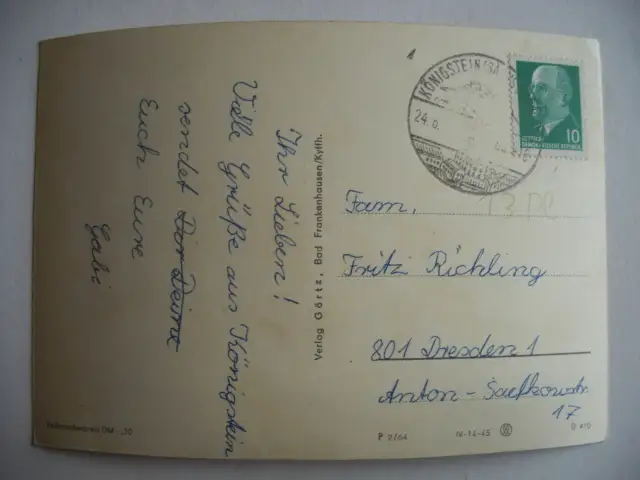 Ihr Lieben!
Viele Grüße aus Königstein
sendet Dir Deine
Euch Eure
Gabi
Verlag Görtz, Bad Frankenhausen/Kyffh.
KÖNIGSTEIN (SÄ
24. 6.
10
DEUTSCHE
DEMOKRATISCHE REPUBLIK
13 DR
Fam.
Fritz Richling
801 Dresden 1
Anton-Saefkowstr.
17
P 2/64
IV-14-45
D 410